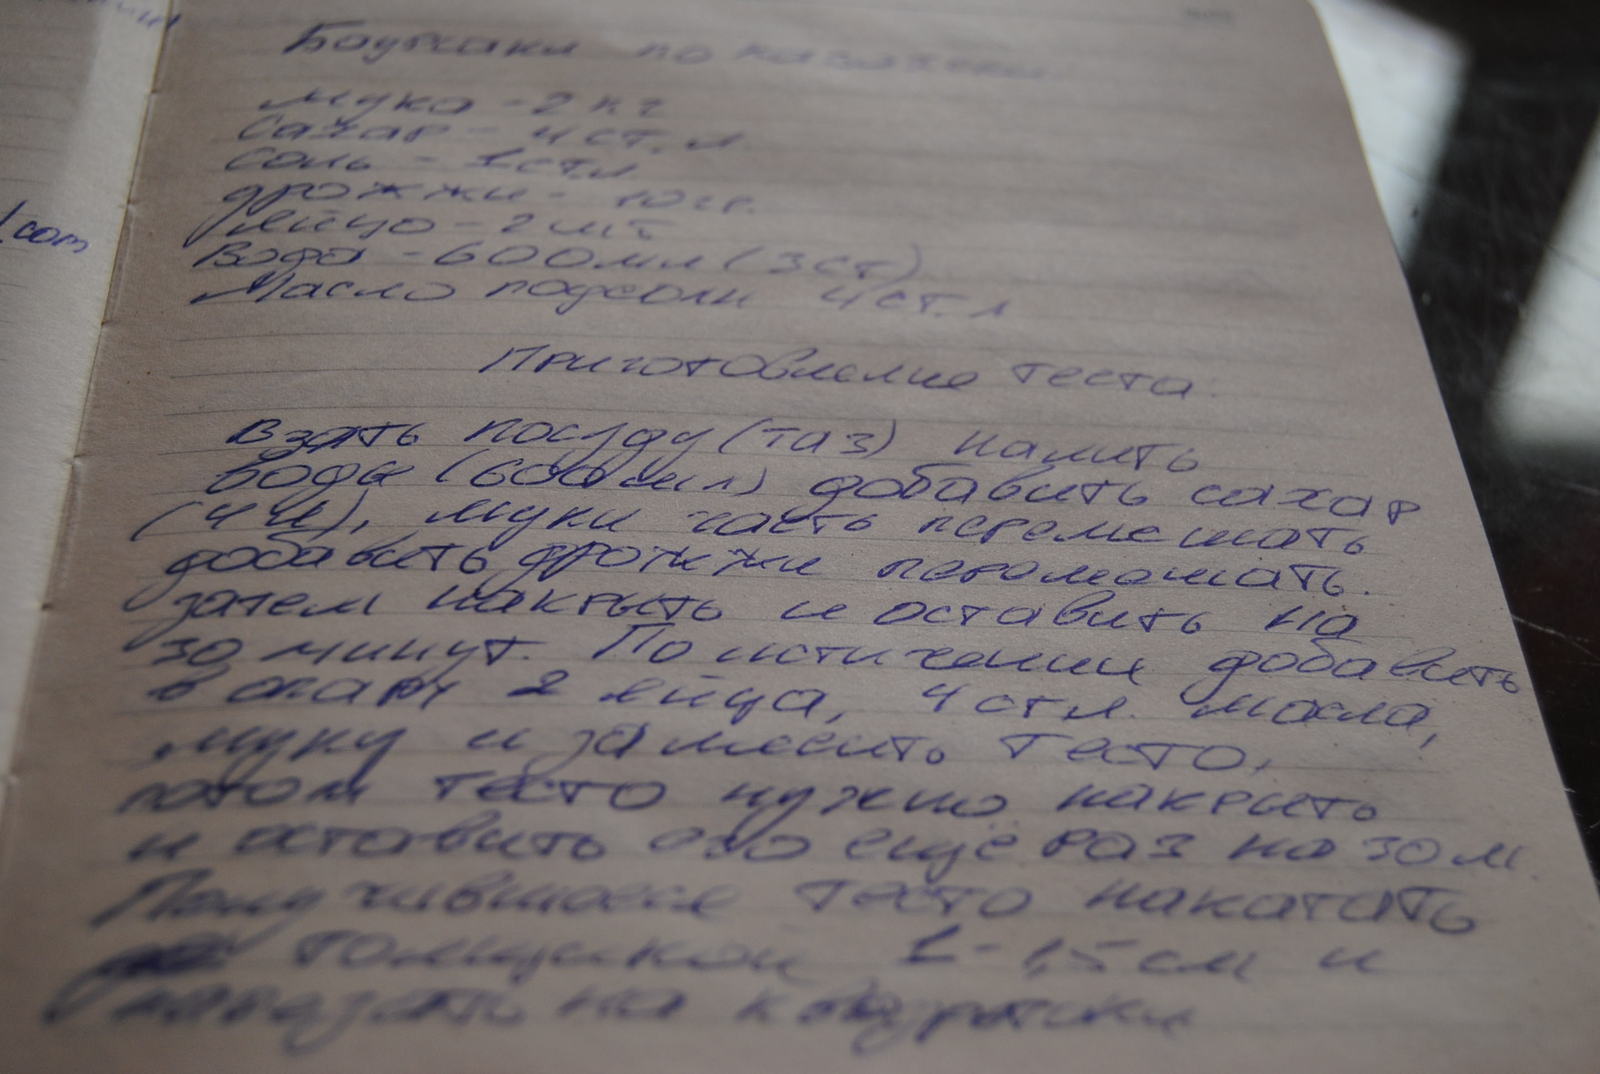 Баурсаки по казахски
Мука - 2 кг
Сахар - 4 ст. л
Соль - 1 ст л
дрожжи - 10 гр.
яйцо - 2 шт
Вода - 600 мл (3 ст)
Масло подсолн 4 ст. л
Приготовление теста.
Взять посуду (таз) налить
воды (600 мл) добавить сахар
муки часть перемешать
добавить дрожжи перемешать.
затем накрыть и оставить на
30 минут. По истичении добавить
в опару 2 яйца, 4 ст л. масла,
муку и замесить тесто,
потом тесто нужно накрыть
и оставить его еще раз на 30 м.
Получившееся тесто накатать
толщиной 1-1,5 см и
нарезать на квадратики
com